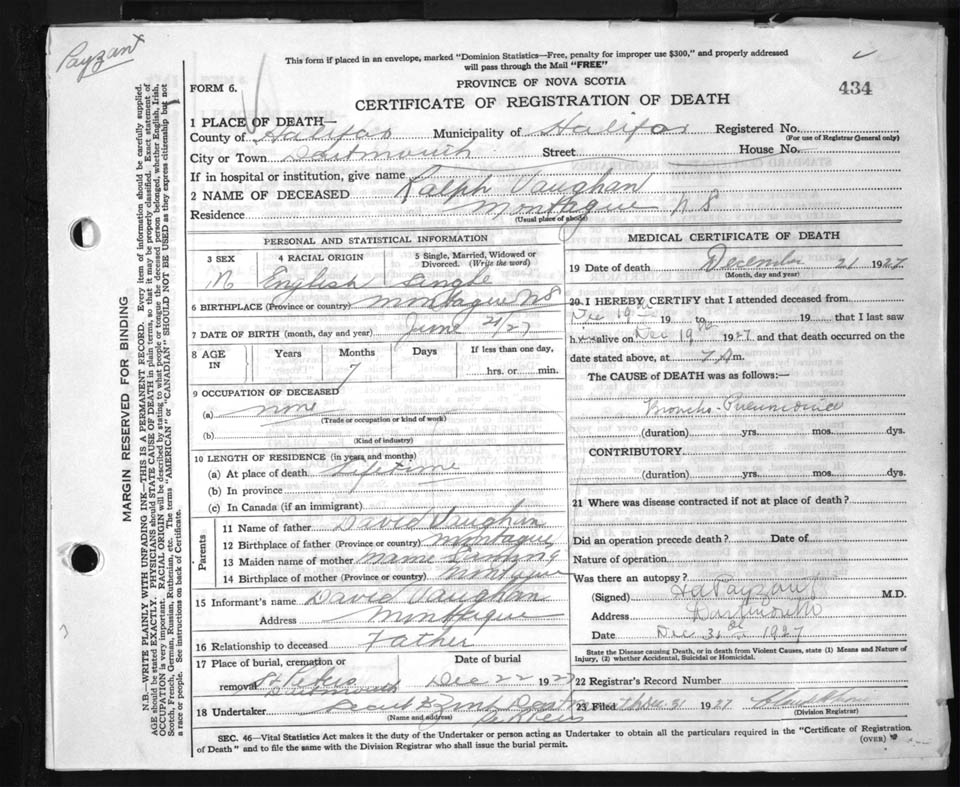 Payzant
This form if placed in an envelope, marked "Dominion Statistics—Free, penalty for improper use $300," and properly addressed
will pass through the Mail "FREE"
FORM 6.
PROVINCE OF NOVA SCOTIA
434
CERTIFICATE OF REGISTRATION OF DEATH
1 PLACE OF DEATH—
County of Halifax Municipality of Halifax Registered No.
(For use of Registrar General only)
City or Town Dartmouth Street House No.
If in hospital or institution, give name
2 NAME OF DECEASED Ralph Vaughan
Residence Montague N S
(Usual place of abode)
PERSONAL AND STATISTICAL INFORMATION
3 SEX 4 RACIAL ORIGIN 5 Single, Married, Widowed or
Divorced. (Write the word)
M English Single
6 BIRTHPLACE (Province or country) Montague NS
7 DATE OF BIRTH (month, day and year) June 21/27
8 AGE IN Years Months Days If less than one day,
7 hrs. or min.
9 OCCUPATION OF DECEASED
(a) none
(Trade or occupation or kind of work)
(b)
(Kind of industry)
10 LENGTH OF RESIDENCE (in years and months)
(a) At place of death lifetime
(b) In province
(c) In Canada (if an immigrant)
Parents
11 Name of father David Vaughan
12 Birthplace of father (Province or country) Montague
13 Maiden name of mother Mamie
14 Birthplace of mother (Province or country) Montague
15 Informant's name David Vaughan
Address Montague
16 Relationship to deceased Father
17 Place of burial, cremation or Date of burial
removal St Peters Dartmouth Dec 22 1927
18 Undertaker
(Name and address)
MEDICAL CERTIFICATE OF DEATH
19 Date of death December 21 1927
(Month, day and year)
20 I HEREBY CERTIFY that I attended deceased from
Dec 19th 19 to 19 that I last saw
h alive on Dec 19th 1927 and that death occurred on the
date stated above, at 7 A m.
The CAUSE of DEATH was as follows:—
Broncho-Pneumonia
(duration) yrs. mos. dys.
CONTRIBUTORY.
(duration) yrs. mos. dys.
21 Where was disease contracted if not at place of death?
Did an operation precede death? Date of
Nature of operation
Was there an autopsy?
(Signed) H A Payzant M.D.
Address Dartmouth
Date Dec 31st 1927
State the Disease causing Death, or in death from Violent Causes, state (1) Means and Nature of
Injury, (2) whether Accidental, Suicidal or Homicidal.
22 Registrar's Record Number
23 Filed Dec 31 1927
(Division Registrar)
SEC. 46—Vital Statistics Act makes it the duty of the Undertaker or person acting as Undertaker to obtain all the particulars required in the "Certificate of Registration
of Death" and to file the same with the Division Registrar who shall issue the burial permit.
(OVER)
MARGIN RESERVED FOR BINDING
N.B.—WRITE PLAINLY WITH UNFADING INK—THIS IS A PERMANENT RECORD. Every item of information should be carefully supplied.
AGE should be stated EXACTLY. PHYSICIANS should STATE CAUSE OF DEATH in plain terms, so that it may be properly classified. Exact statement of
OCCUPATION is very important. RACIAL ORIGIN will be described by stating to what people or tongue the deceased person belonged, whether English, Irish,
Scotch, French, German, Russian, Ruthenian, etc. The terms "AMERICAN" or "CANADIAN" SHOULD NOT BE USED as they express citizenship but not
a race or people. See instructions on back of Certificate.